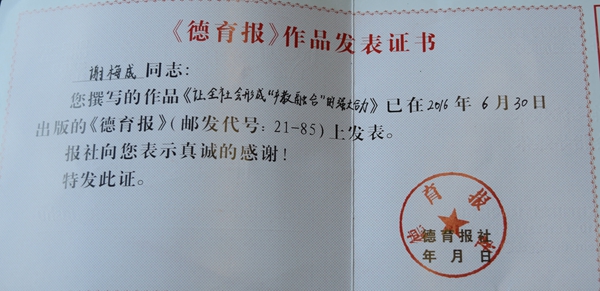 《德育报》作品发表证书
谢梅成同志：
您撰写的作品《让全社会形成“教融合”的强大合力》已在2016年6月30日
出版的《德育报》（邮发代号：21-85）上发表。
报社向您表示真诚的感谢！
特发此证。
德育报社
德育报社
年 月 日